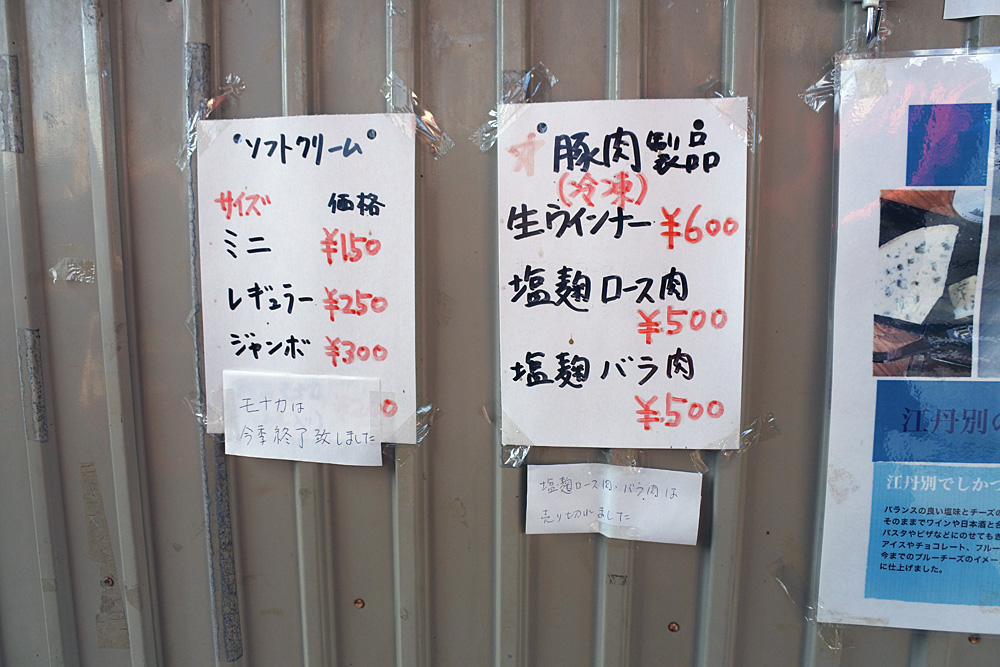 "ソフトクリーム"
サイズ 価格
ミニ ¥150
レギュラー ¥250
ジャンボ ¥300
0
モナカは
今季終了致しました
豚肉製品
(冷凍)
生ウインナー ¥600
塩麹ロース肉
¥500
塩麹バラ肉
¥500
塩麹ロース肉・バラ肉は
売り切れました
江丹別の
江丹別でしかつ
バランスの良い塩味とチーズの
そのままでワインや日本酒と合
パスタやピザなどにのせても
アイスやチョコレート、フルー
今までのブルーチーズのイメー
に仕上げました。